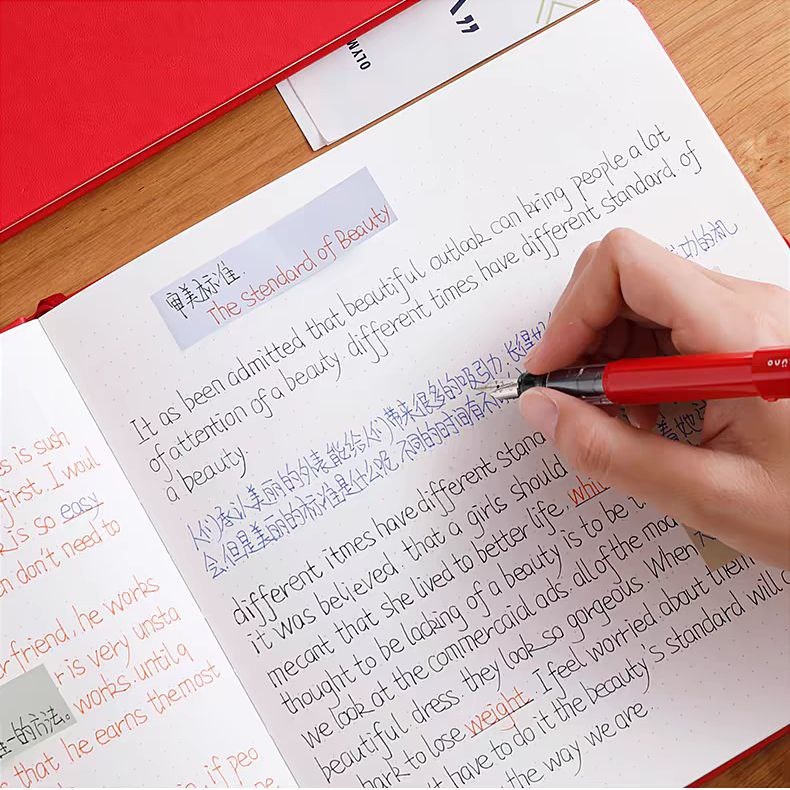 OLYM
审美标准.
The Stendard of Beauty
It as been admitted that beautiful outlook can bring people a lot
of attention of a beauty. different times have different standard of
a beauty.
人们承认美丽的外表能给人们带来很多的吸引力,长得好
成功的机
会,但是美丽的标准是什么呢,不同的时间有不
着她
different itmes have different stand
it was believed. that a girls should
mecant that she lived to better life, whi
thought to be lacking of a beauty is to be
we look at the commercaial ads. all of the mod
beautiful. dress. they look so gorgeous. When
hark to lose weight. I feel worried about them
't have to do it the becauty's standard will c
the way we are
es is sush
first. I woul
R is so easy
en don't need to
r friend, he works
r is very unsta
works. until q
一的方法。
s that he earns the most
if peo
uno